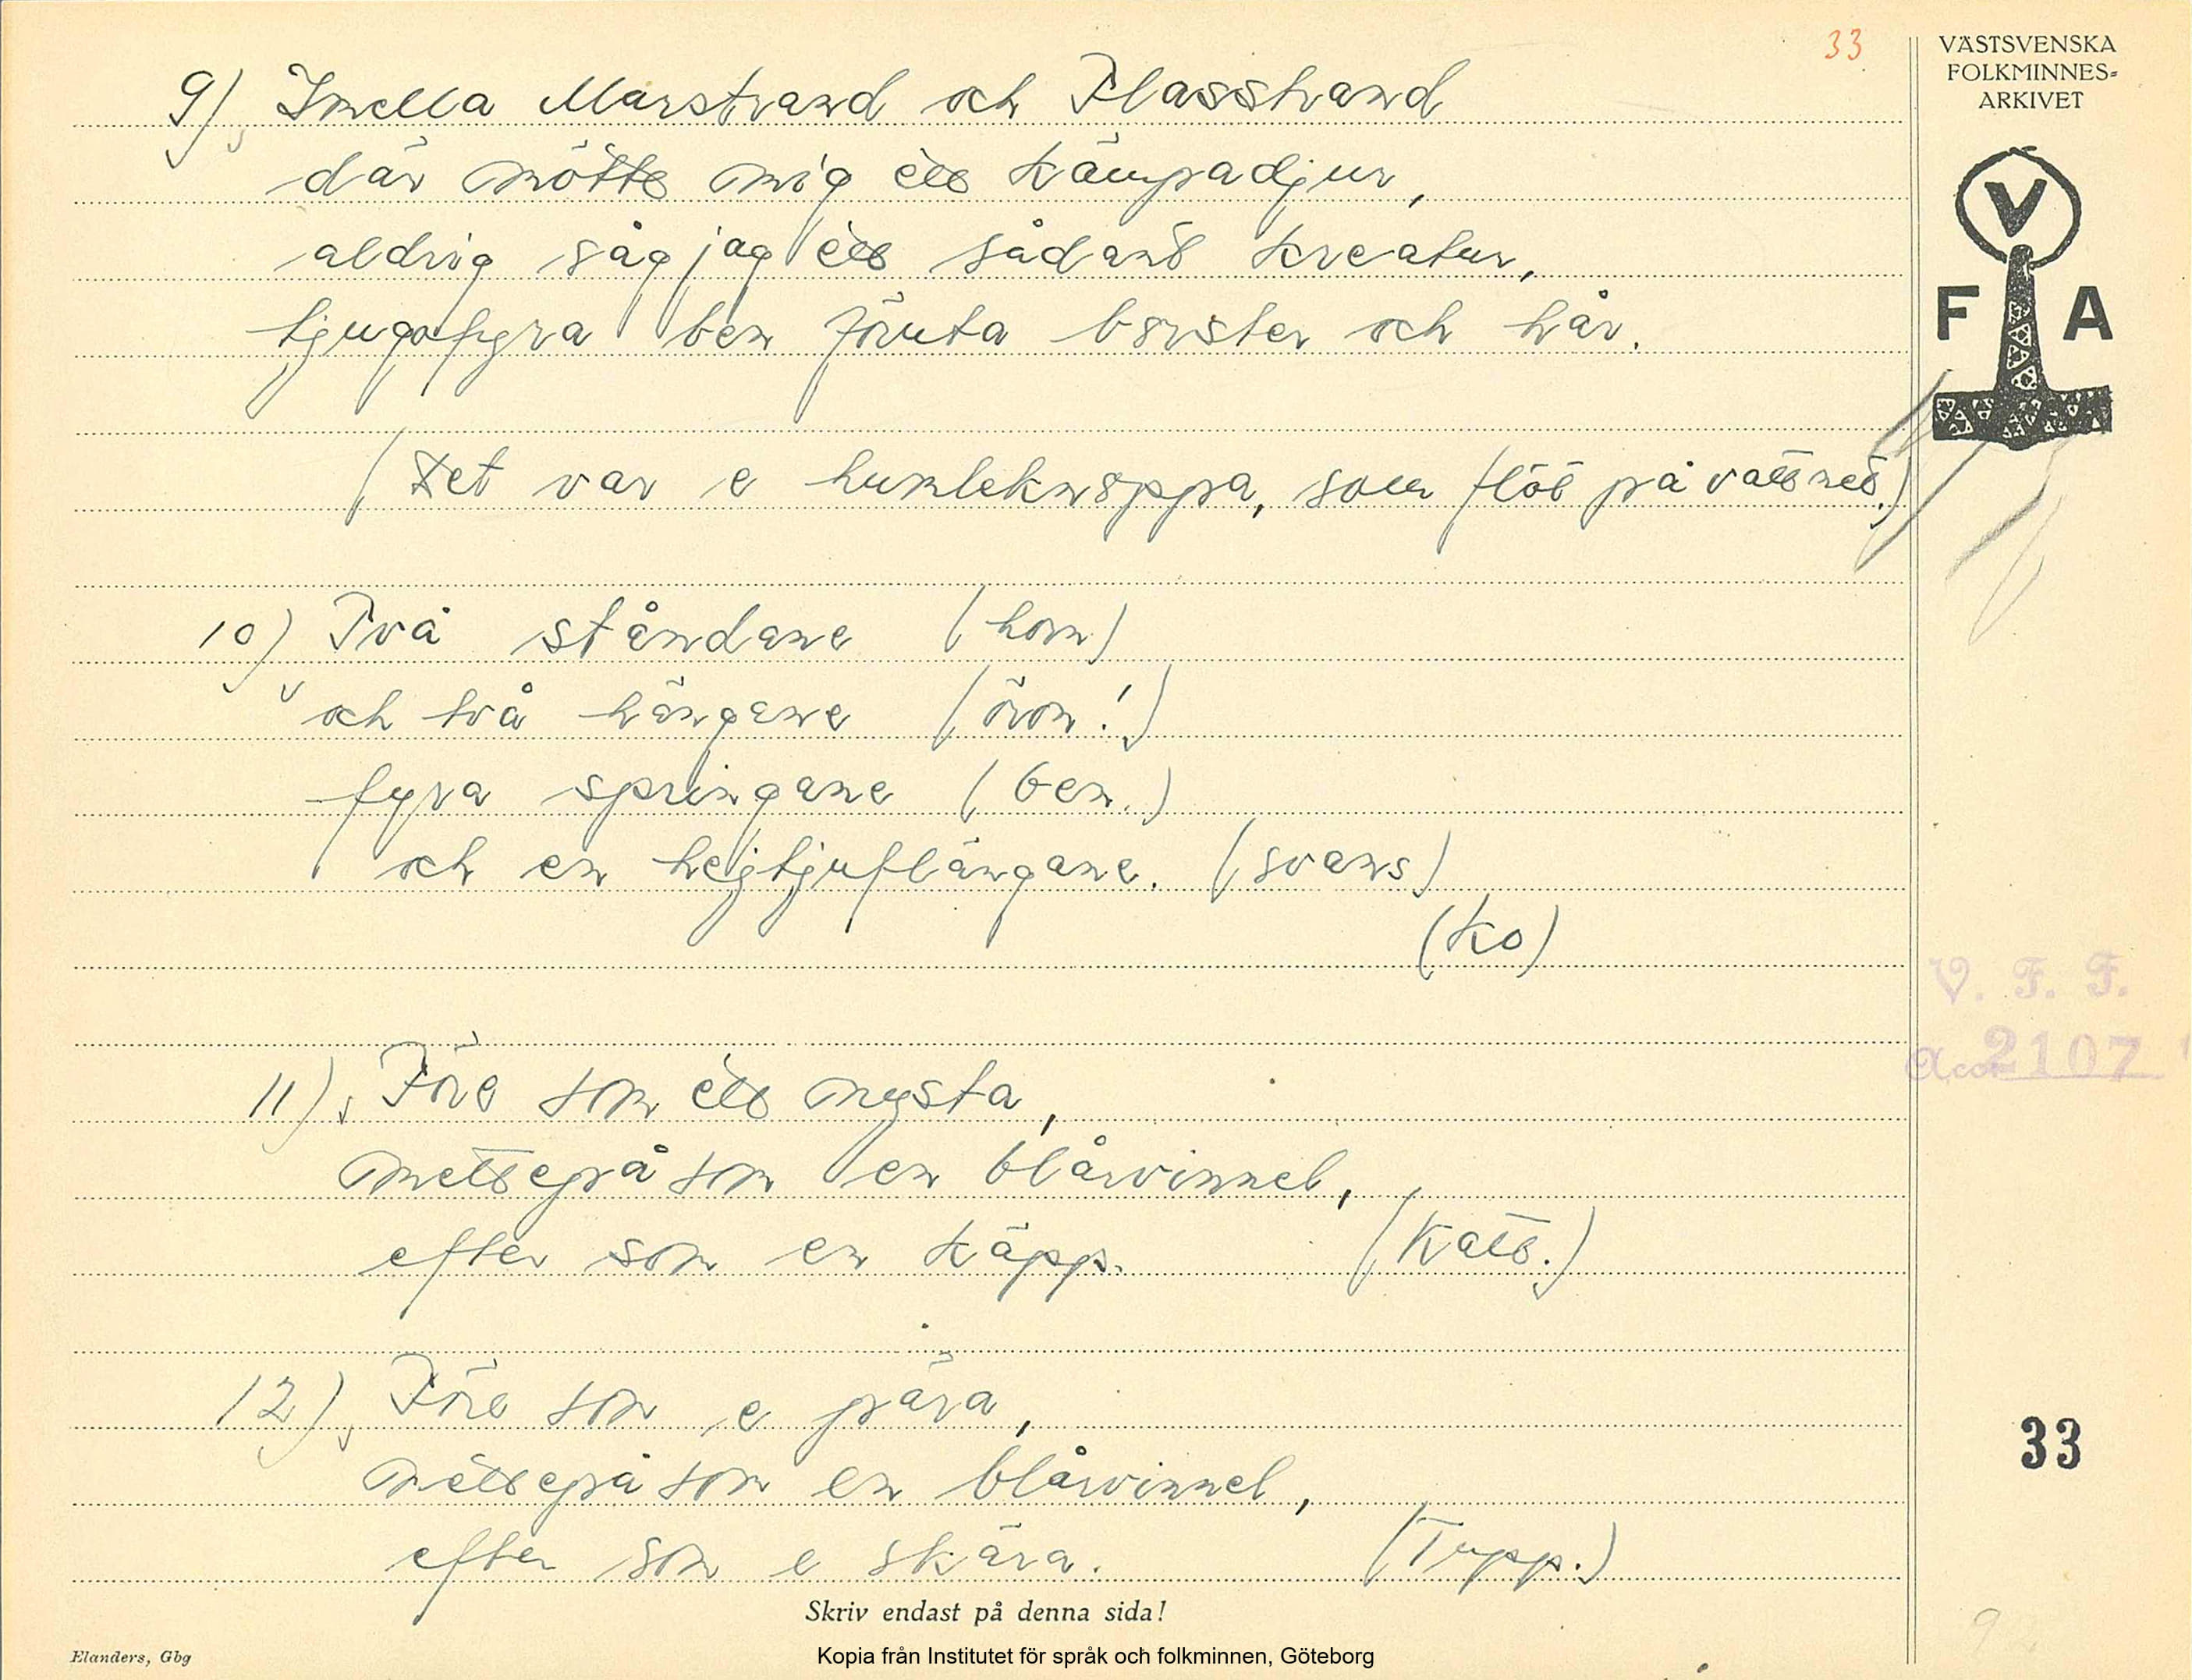 33
VÄSTSVENSKA
FOLKMINNES-
ARKIVET
V
F A
9) Imella Marstrand och Flasstrand
där mötte mig ett kämpadjur,
aldrig såg jag ett sådant kreatur,
tjugofyra ben föruta borster och hår.
(Det var e humleknoppa, som flöt på vattnet.)
10) Två ståndane (horn)
och två hängane (öron!)
fyra springane (ben.)
och en hejtjuflängane. (svans)
(Ko)
11) Före som ett nysta,
mettepå som en blårvinnel,
efter som en käpp. (Katt.)
12) Före som e pära,
mettepå som en blårvinnel,
efter som e skära. (Tupp.)
V. F. F.
Acc. 2107
33
9
Skriv endast på denna sida!
Elanders, Gbg
Kopia från Institutet för språk och folkminnen, Göteborg